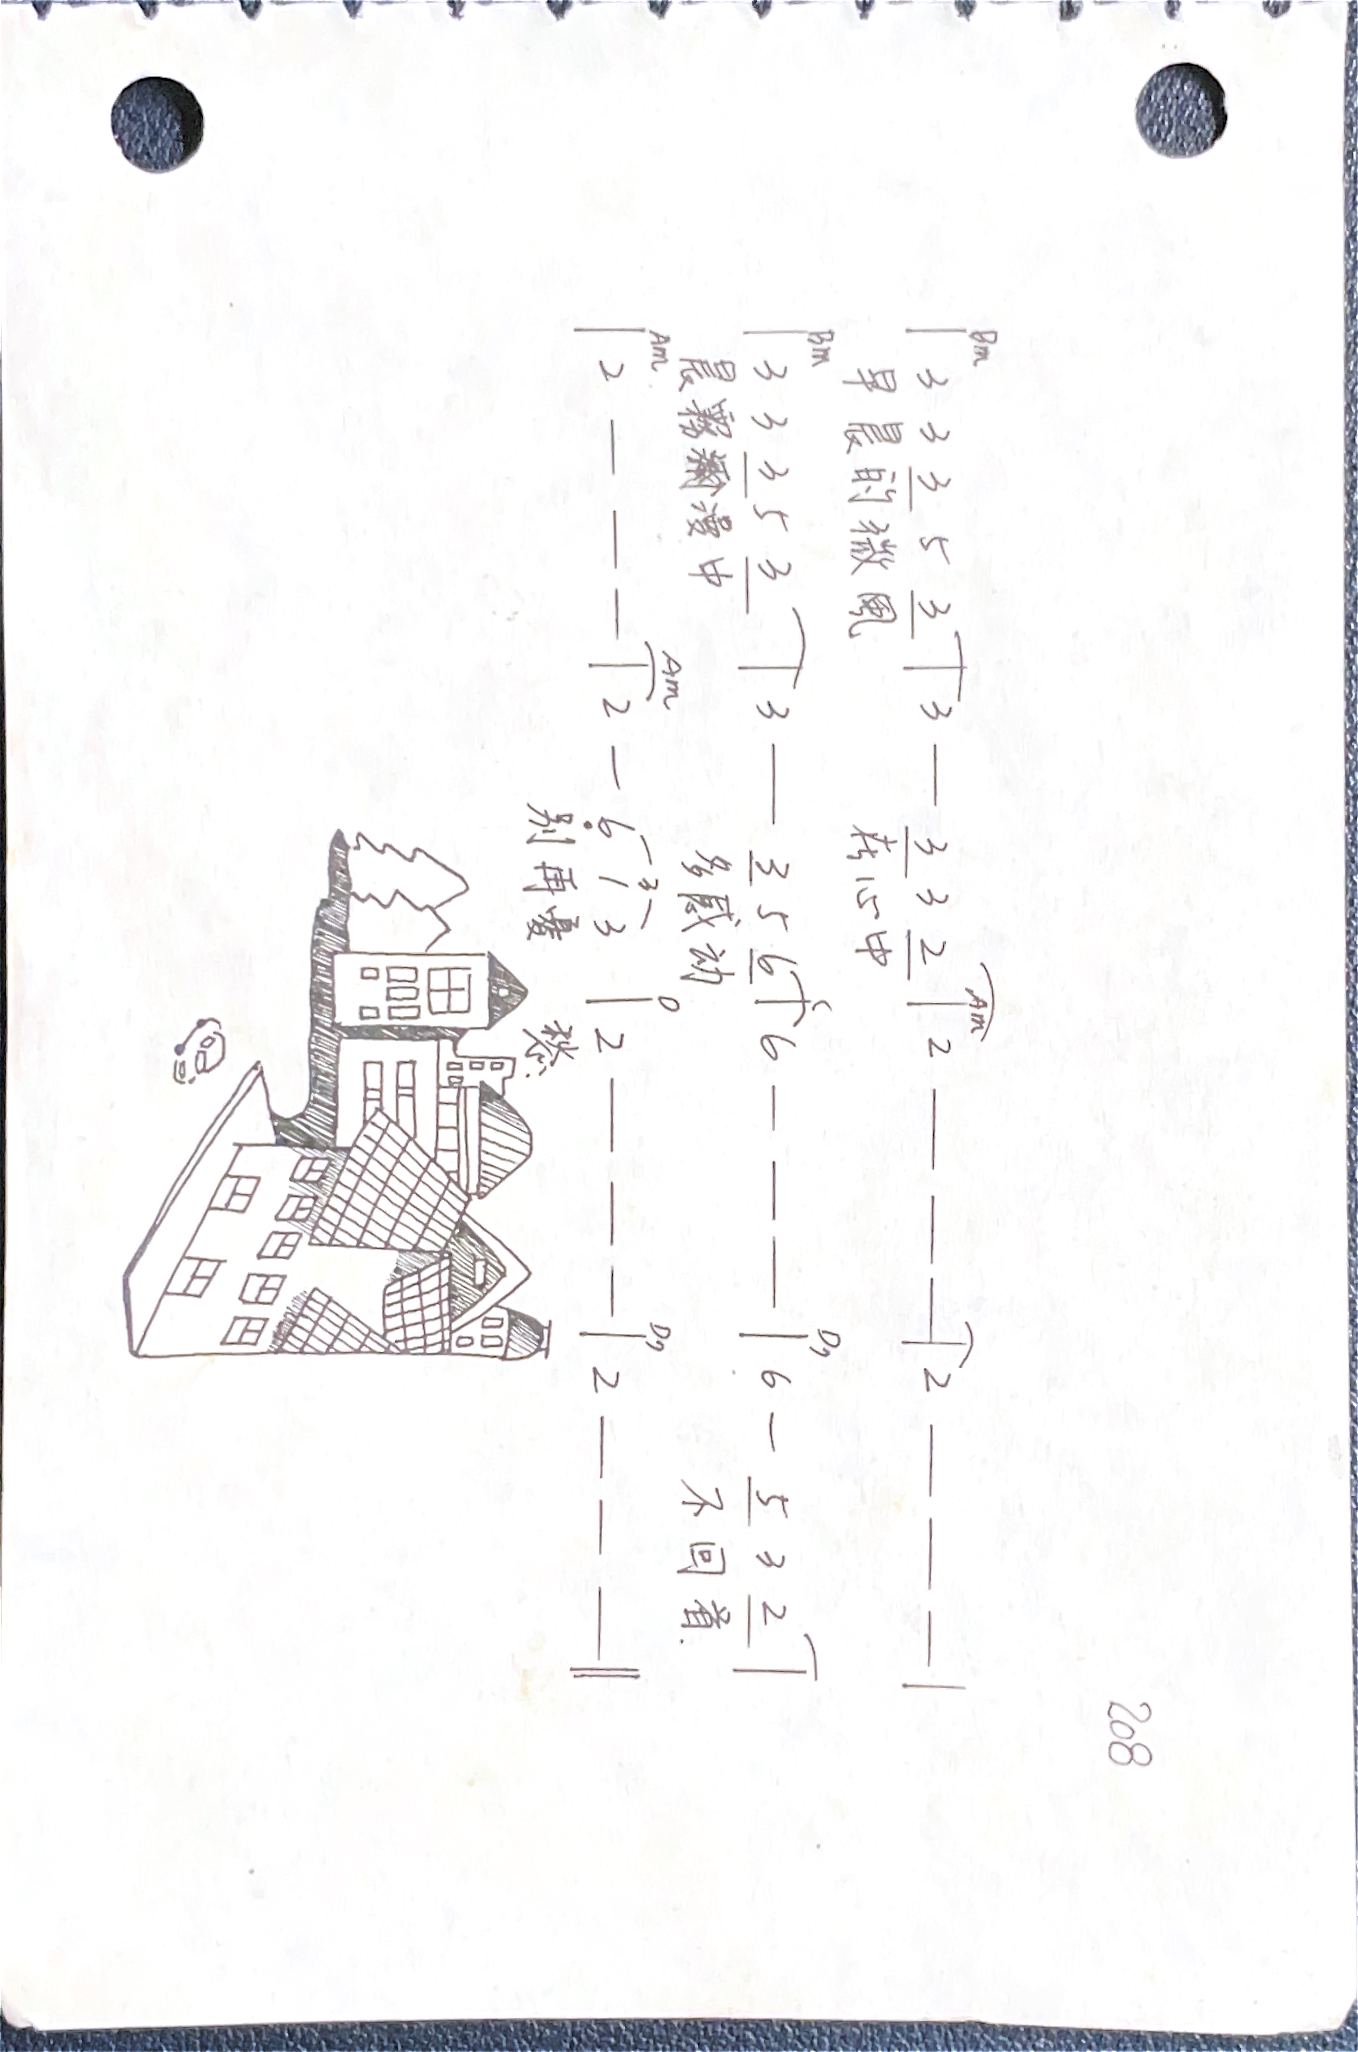 208
Bm Am
| 3 3 3 5 3 | 3 — 3 3 2 | 2 — — — | 2 — — — |
早晨的微風 在心中
Bm C D7
| 3 3 3 5 3 | 3 — 3 5 6 | 6 — — — | 6 — 5 3 2 |
晨霧瀰漫中 多感动 不回首.
Am Am 3 D D7
| 2 — — — | 2 — 6 1 3 | 2 — — — | 2 — — — ‖
别再憂 愁.